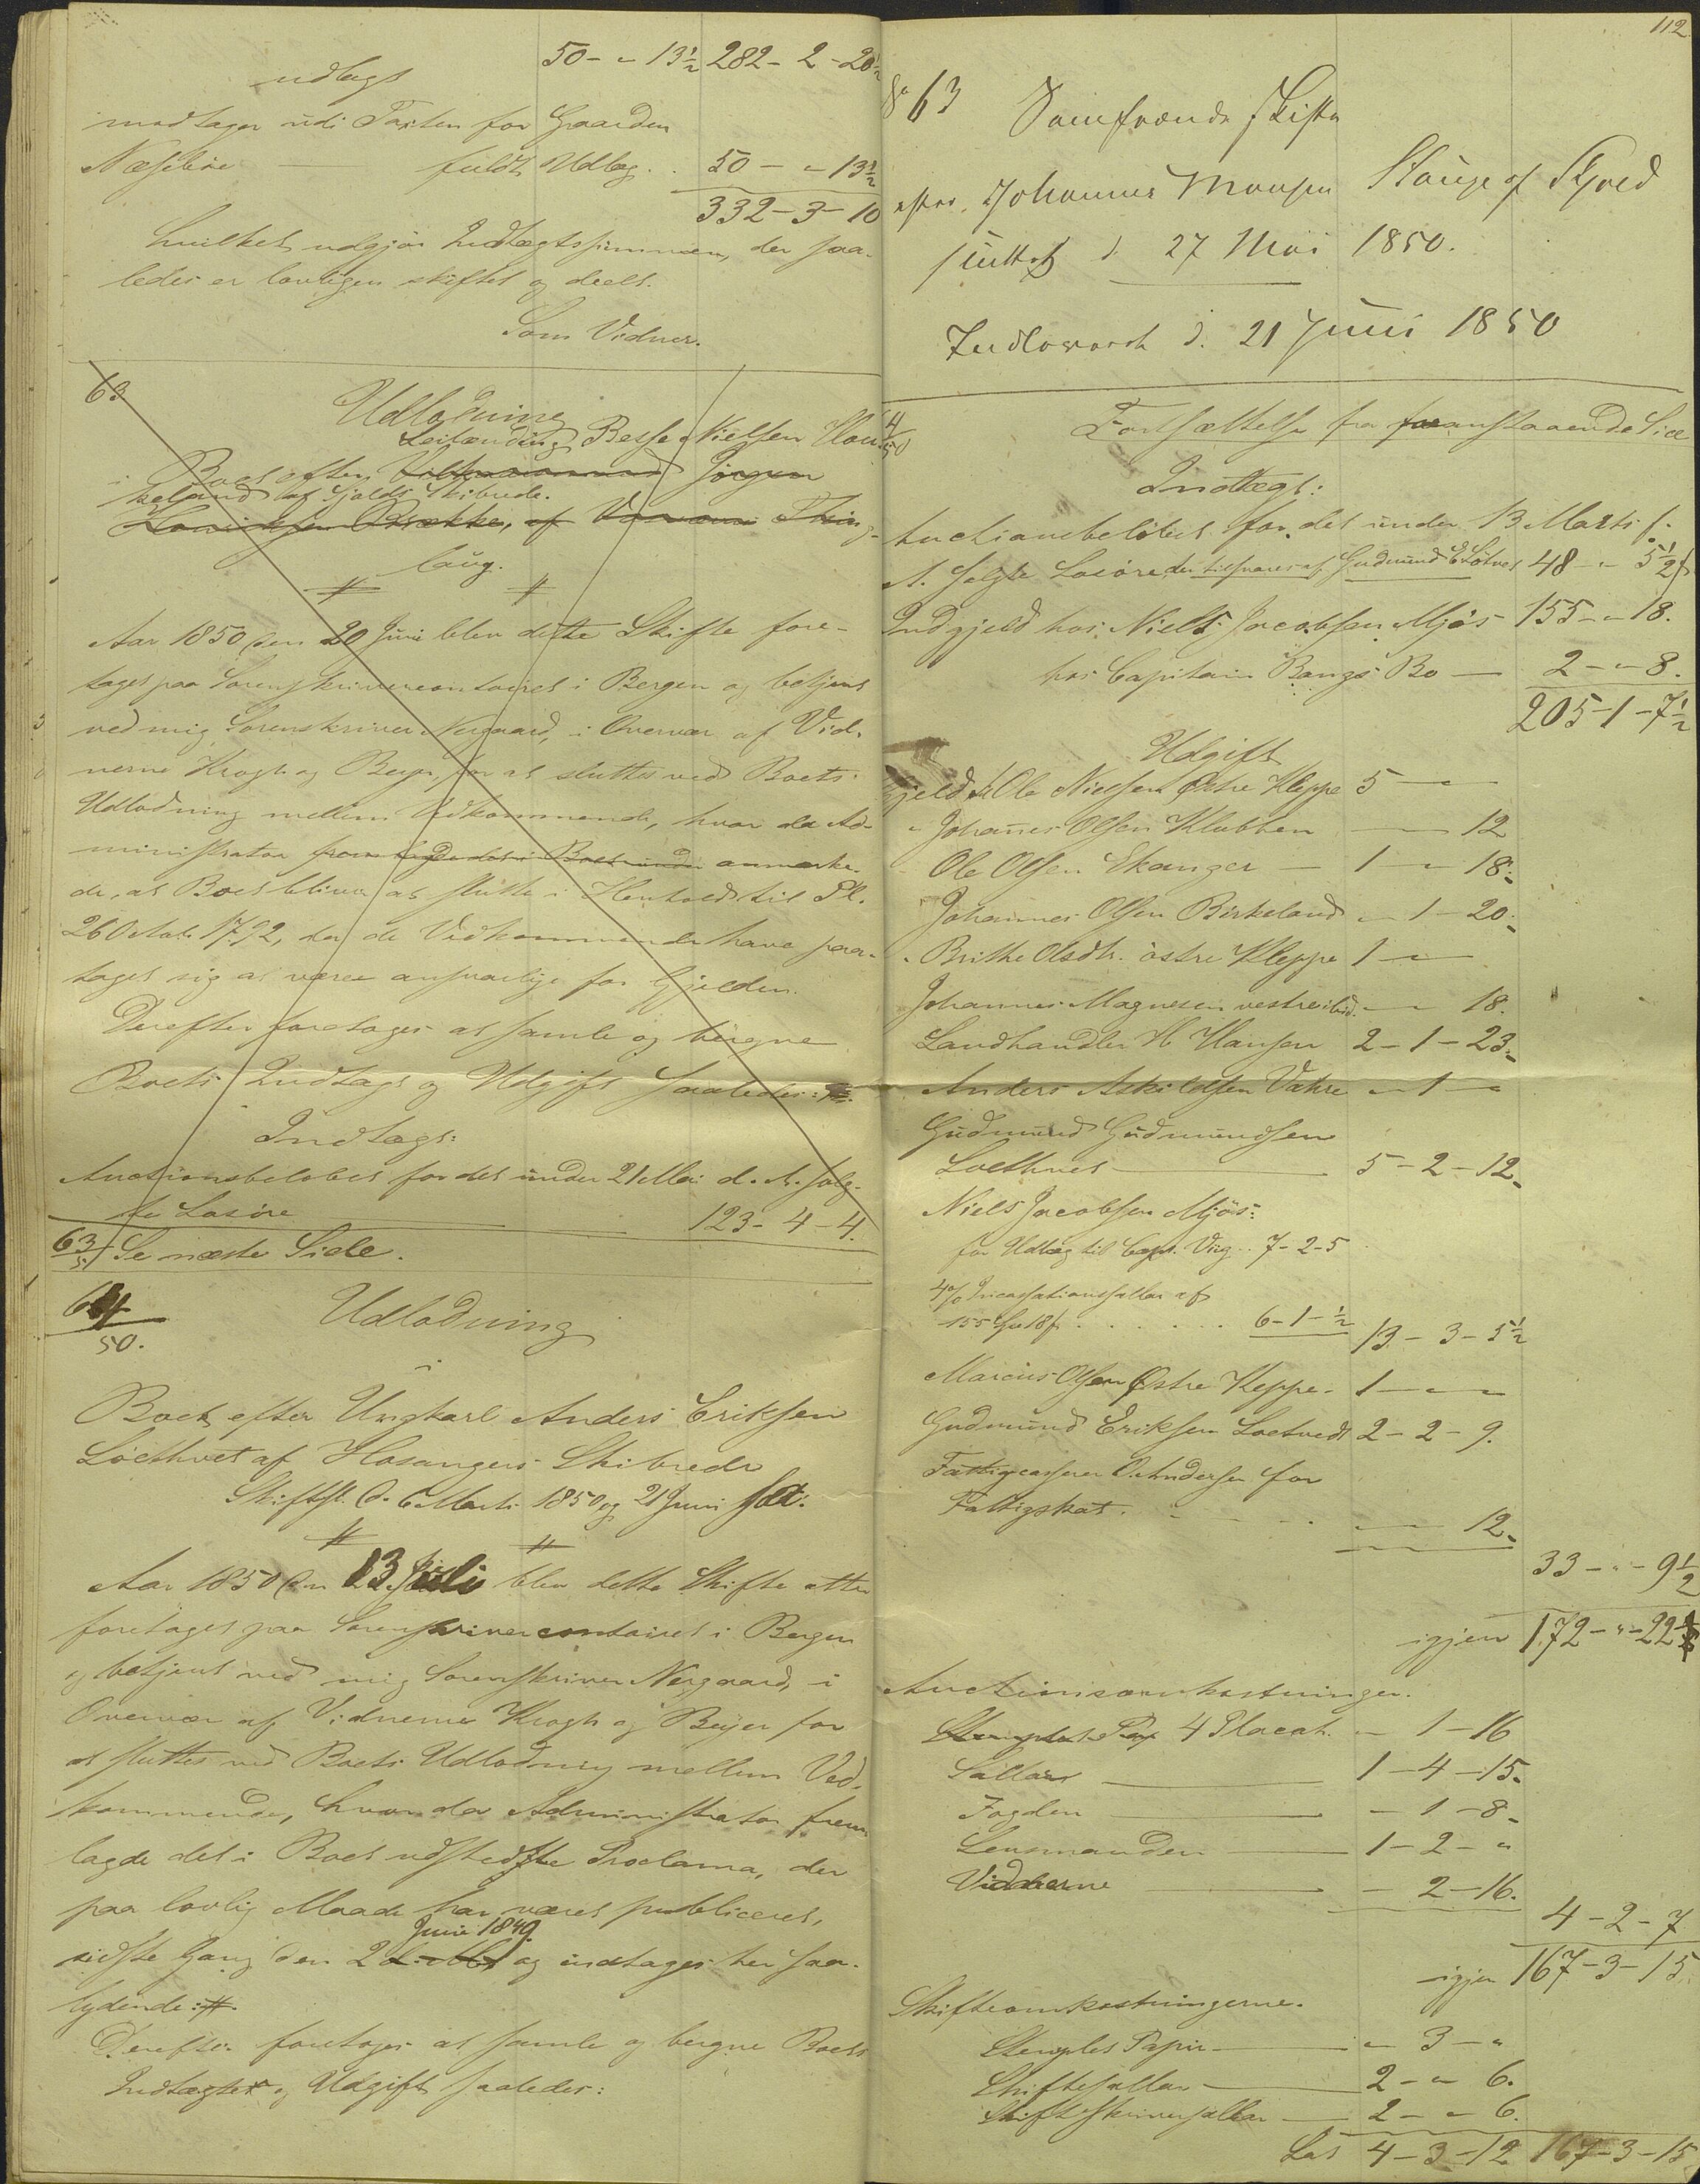 50 - " 13½ 282 - 2 - 20½
udlagt
modtager udi Taxten for Gaarden
Næsebøe fuldt Udlæg . . 50 - " 13½
332 - 3 - 10
hvilket udgjør Indtægtssummen, der saa-
ledes er lovligen skiftet og deelt.
Som Vidner.
63
Udlodning
Leilænding Besse Nielsen Hau-
i Boet efter Jørgen
keland af Gjelds Skibrede.
Henriksen Brække, af Thing-
laug.
Aar 1850 den 20 Juni blev dette Skifte fore-
taget paa Sorenskrivercontoiret i Bergen og betjent
ved mig Sorenskriver Nergaard, i Overvær af Vid-
nerne Krogh og Beyer, for at sluttes ved Boets
Udlodning mellem Vedkommende, hvor da Ad-
ministrator fremlagde det i Boet under anmærke-
de, at Boet bliver at slutte i Henhold til Pl.
26 Octob. 1792, da de Vedkommende have paa-
taget sig at være ansvarlige for Gjelden.
Derefter foretages at samle og beregne
Boets Indtægt og Udgift saaledes:
Indtægt:
Auctionsbeløbet for det under 21 Mai d. A. solg-
te Løsøre 123 - 4 - 4.
63/50 Se næste Side.
64
50.
Udlodning
i
Boet efter Ungkarl Anders Eriksen
Löethvet af Hosangers Skibrede
Skiftet d. 6 Marts 1850 og 21 Juni
Aar 1850 den 13 Juli blev dette Skifte atter
foretaget paa Sorenskrivercontoiret i Bergen
og betjent ved mig Sorenskriver Nergaard, i
Overvær af Vidnerne Krogh og Beyer for
at sluttes ved Boets Udlodning mellem Ved-
kommende, hvor da Administrator frem-
lagde det i Boet udstedte Proclama, der
paa lovlig Maade har været publiceret,
Juni 1849.
sidste Gang den 2 og indtages her saa-
lydende:
Derefter foretages at samle og beregne Boets
Indtægter og Udgift saaledes:
112
No 63 Samfrænde Skifte
efter Johannes Monsen Stauge af Skjold
sluttet d. 27 Mai 1850.
Indleveret d. 21 Juni 1850
64/50
Fortsættelse fra foranstaaende Side
Indtægt:
Auctionsbeløbet for det under 13 Marts f.
A. solgte Løsøre der tilsvares af Gudmund E. Løtvet 48 - " 5½
Indgjeld hos Niels Jacobsen Mjøs 155 - " 18.
hos Capitain Bangs Bo 2 - " 8.
205 - 1 - 7½
Udgift
Gjeld til Ole Nielsen Østre Kleppe 5 - "
" Johanes Olsen Klubben " 12
" Ole Olsen Ekanger 1 - " 18.
Johannes Olsen Birkeland " 1 - 20.
" Brithe Olsdtr. østre Kleppe 1 - "
Johannes Magnesen vestre ibid. " 18.
Landhandler H Hansen 2 - 1 - 23.
Anders Askildsen Vahre " 1 - "
Gudmund Gudmundsen
Loethvet 5 - 2 - 12.
Niels Jacobsen Mjøs:
for Udlæg til Capt. 7 - 2 - 5
4% Incassationssallar af
155 18 . . . . . . 6 - 1 - ½ 13 - 3 - 5½
Marcus Olsen Østre Kleppe 1 - " - "
Gudmund Eriksen Loetvedt 2 - 2 - 9.
Fattigcasserer O. Andersen for
Fattigskat 12.
33 - " - 9½
igjen 172 - " - 22
Auctionsomkostninger.
4 Placat. " 1 - 16
Sallær 1 - 4 - 15.
Fogden - 1 - 8 -
Lensmanden 1 - 2 - "
Vidnerne - 2 - 16.
4 - 2 - 7
igjen 167 - 3 - 15.
Skifteomkostningerne.
Stemplet Papir " 3 - "
Skiftesallær 2 - " 6.
Skifteskriversallær 2 - " 6.
Lat 4 - 3 - 12 167 - 3 - 15